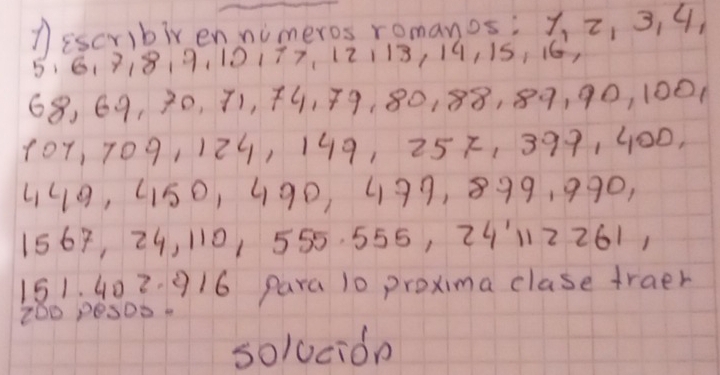 1) Escribir en números romanos: 1, 2, 3, 4,
5, 6, 7, 8, 9, 10, 11, 12, 13, 14, 15, 16,
68, 69, 70, 71, 74, 79, 80, 88, 89, 90, 100,
101, 109, 124, 149, 257, 399, 400,
449, 450, 490, 499, 899, 990,
1567, 24,110, 555.555, 24'112261,
151.402.916 para lo proxima clase traer
200 pesos.
solución